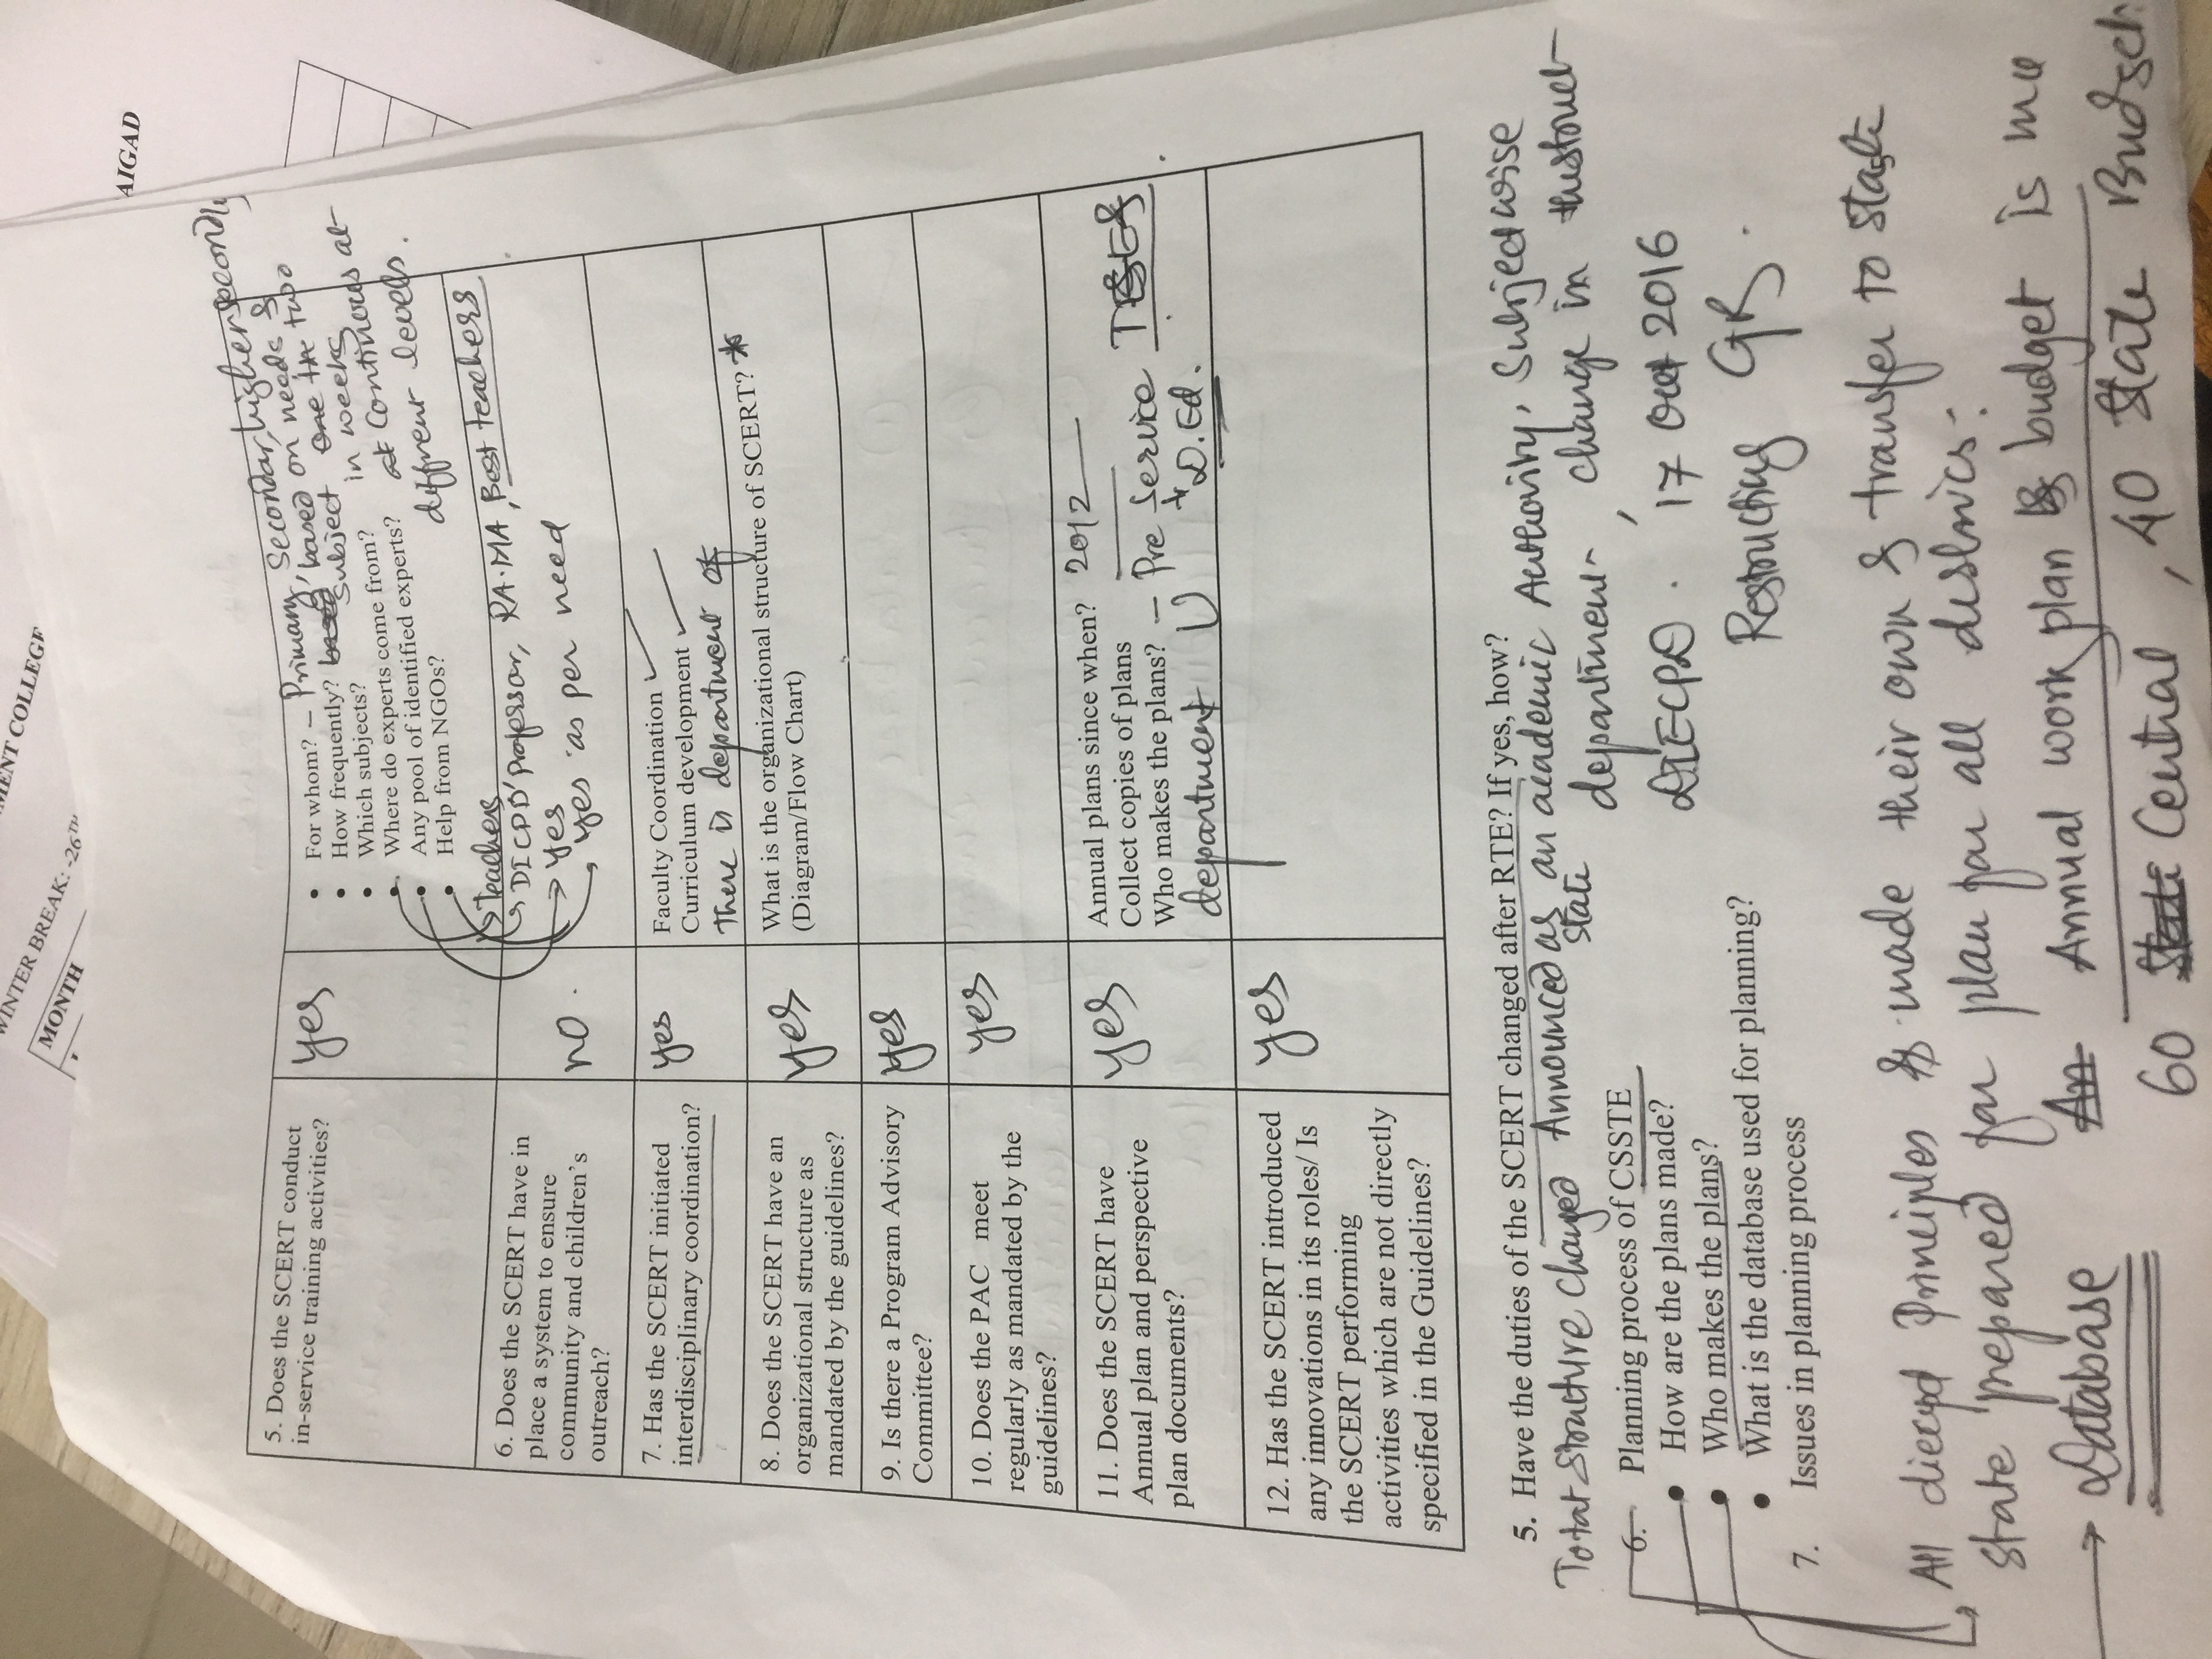 MENT COLLEGE
WINTER BREAK:-26TH
MONTH
AIGAD
5. Does the SCERT conduct
in-service training activities?
yes
• For whom? – Primary, Secondary, higher secondly
• How frequently? based, based on needs &
Subject one the two
• Which subjects? in weeks
• Where do experts come from? at Continuous at
• Any pool of identified experts? diffrent levels.
• Help from NGOs?
Teachers
DIECPD' professor, RA.MA, Best teachers
yes
yes as per need
6. Does the SCERT have in
place a system to ensure
community and children's
outreach?
no.
7. Has the SCERT initiated
interdisciplinary coordination?
yes
Faculty Coordination
Curriculum development
there is department of
8. Does the SCERT have an
organizational structure as
mandated by the guidelines?
yes
What is the organizational structure of SCERT? *
(Diagram/Flow Chart)
9. Is there a Program Advisory
Committee?
yes
10. Does the PAC meet
regularly as mandated by the
guidelines?
yes
11. Does the SCERT have
Annual plan and perspective
plan documents?
yes
Annual plans since when? 2012
Collect copies of plans
Who makes the plans? – Pre Service
department D.Ed.
12. Has the SCERT introduced
any innovations in its roles/ Is
the SCERT performing
activities which are not directly
specified in the Guidelines?
yes
5. Have the duties of the SCERT changed after RTE? If yes, how?
Total structure changed Announced as an academic Authority, Subject wise
State department, change in
6. Planning process of CSSTE
DIECPD. 17 oct 2016
• How are the plans made?
• Who makes the plans?
Restructing GR.
• What is the database used for planning?
7. Issues in planning process
All Principles & made their own & transfer to state
state prepared for plan for all
An Annual work plan & budget is me
→ Database
60 State Central, 40 State